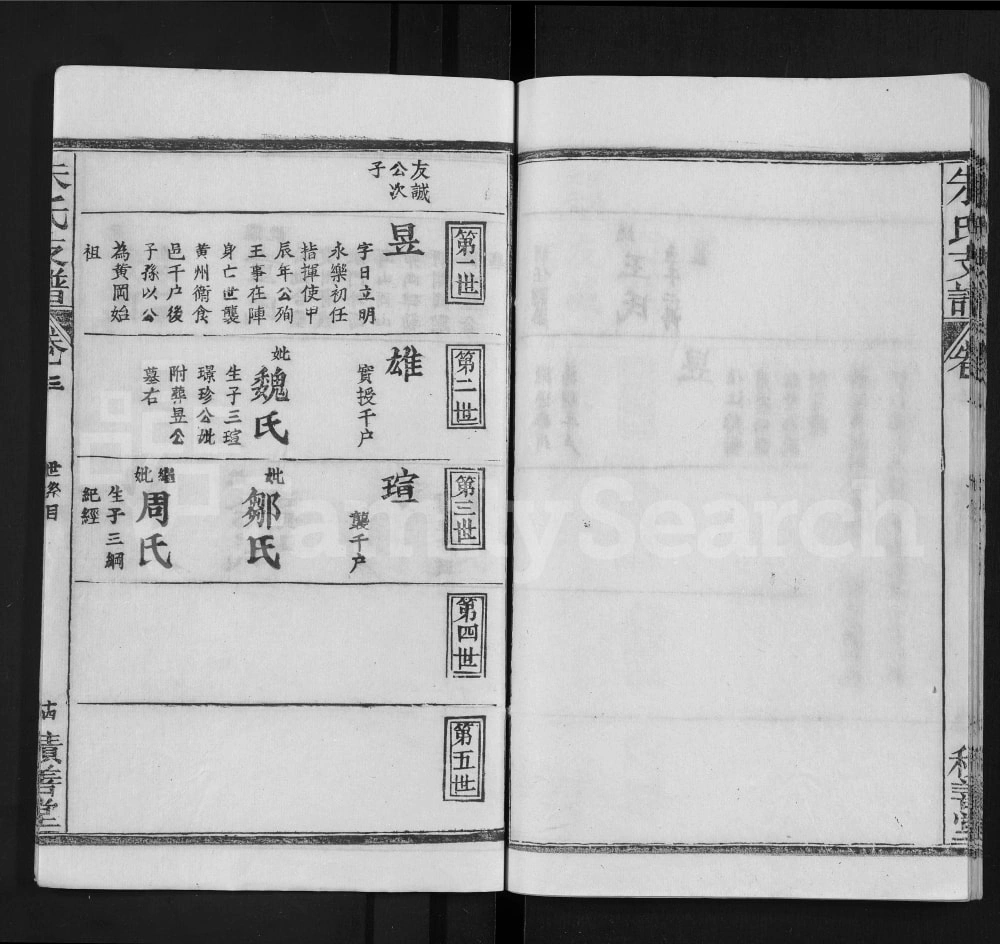 友誠
公次
子
第一世
昱
字日立明
永樂初任
指揮使甲
辰年公殉
王事在陣
身亡世襲
黄州衛食
邑千户後
子孫以公
為黄岡始
祖
第二世
雄
實授千户
妣
魏氏
生子三瑄
璟珍公妣
附葬昱公
墓右
第三世
瑄
襲千户
妣
鄒氏
繼妣
周氏
生子三綱
紀經
第四世
第五世
朱氏支譜
卷十三
世系目
十四
積善堂
朱氏支譜
卷
積善堂
FamilySearch